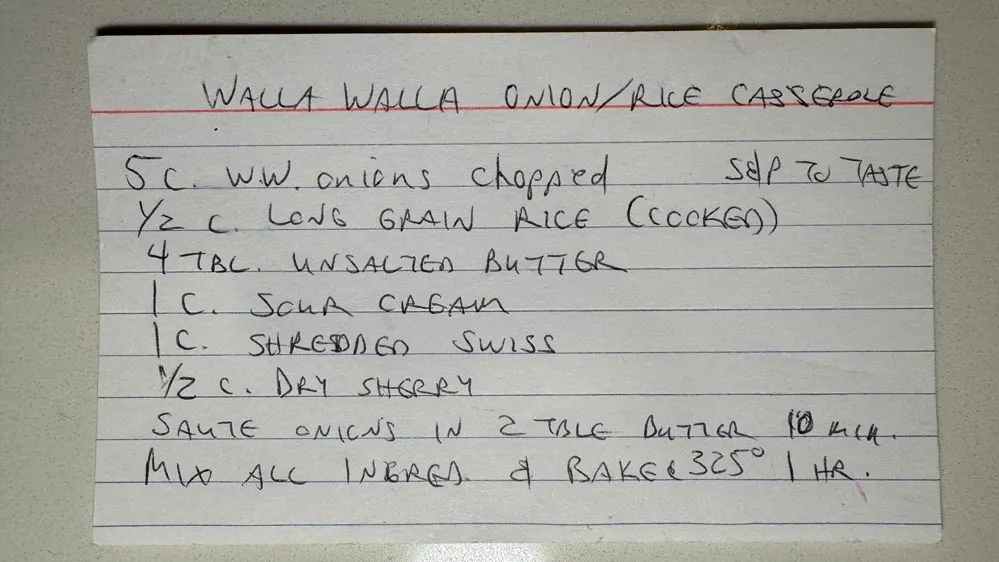 WALLA WALLA ONION/RICE CASSEROLE
5 C. W.W. onions chopped S&P TO TASTE
1/2 C. LONG GRAIN RICE (COOKED)
4 TBL. UNSALTED BUTTER
1 C. SOUR CREAM
1 C. SHREDDED SWISS
1/2 C. DRY SHERRY
SAUTE ONIONS IN 2 TBLE BUTTER 10 MIN.
MIX ALL INGRED. & BAKE @ 325° 1 HR.